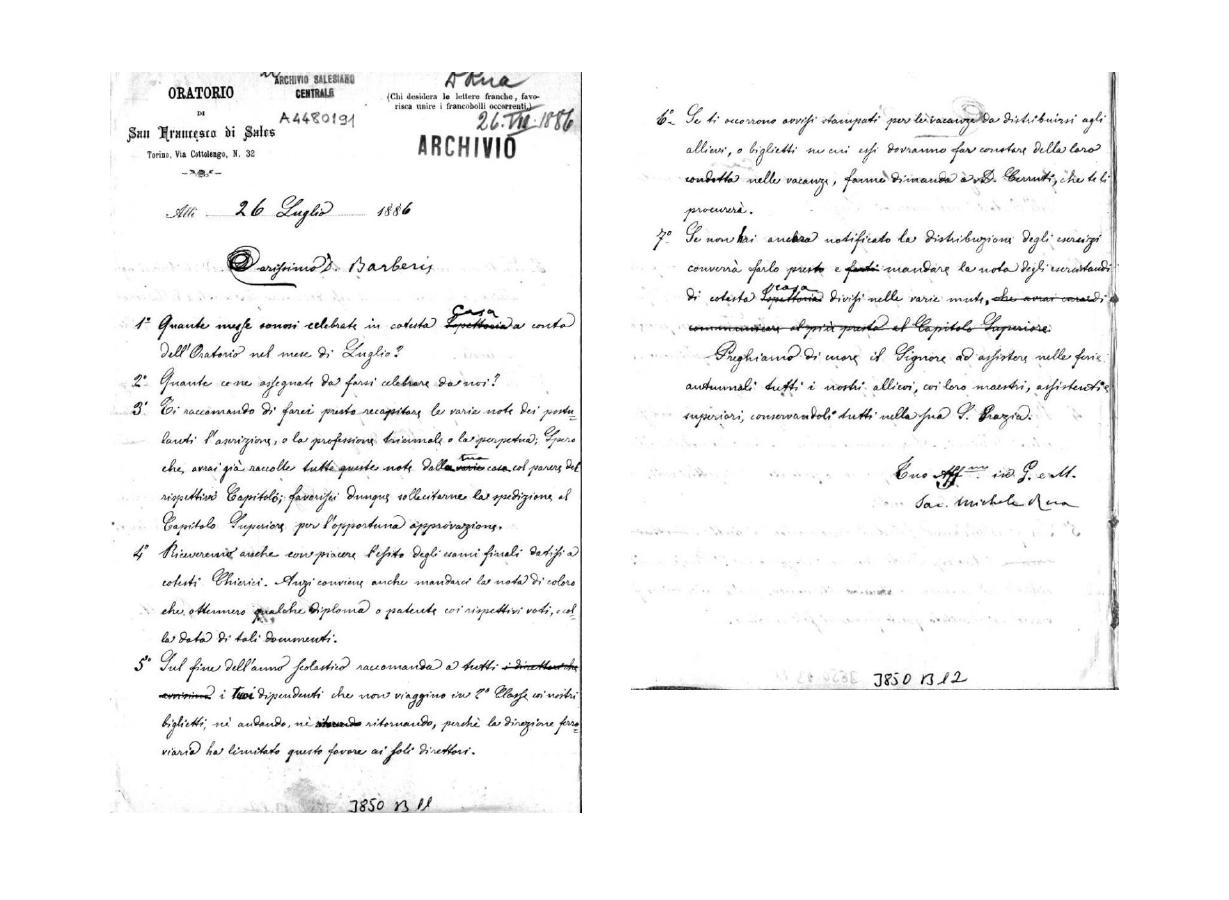 ORATORIO
DI
San Francesco di Sales
Torino, Via Cottolengo, N. 32
ARCHIVIO SALESIANO
CENTRALE
A4480191
D Rua
(Chi desidera le lettere franche, favo-
risca unire i francobolli occorrenti.)
26.VII.1886
ARCHIVIO
Addì 26 Luglio 1886
Carissimo D. Barberis
casa
1° Quante messe sonosi celebrate in cotesta Ispettoria a conto
dell'Oratorio nel mese di Luglio?
2° Quante ce ne assegnate da farsi celebrare da noi?
3° Ti raccomando di farci presto recapitare le varie note dei postu-
lanti l'ascrizione, o la professione triennale o la perpetua; Spero
tua
che, avrai già raccolte tutte queste note dalla varie casa col parere del
rispettivo Capitolo; favorisci dunque sollecitarne la spedizione al
Capitolo Superiore per l'opportuna approvazione.
4° Riceveremo anche con piacere l'esito degli esami finali datisi a
cotesti Chierici. Anzi conviene anche mandarci la nota di coloro
che ottennero qualche diploma o patente coi rispettivi voti, e col-
la data di tali documenti.
5° Sul fine dell'anno scolastico raccomanda a tutti i direttori che
i tuoi dipendenti che non viaggino in 2ª Classe coi nostri
biglietti, nè andando, nè ritornando, perchè la direzione ferro-
viaria ha limitato questo favore ai soli direttori.
3850 B 11
6° Se ti occorrono avvisi stampati per le vacanze da distribuirsi agli
allievi, o biglietti su cui essi dovranno far constare della loro
condotta nelle vacanze, fanne dimanda a D. Cerruti, che te li
procurerà.
7° Se non hai ancora notificato la distribuzione degli esercizi
converrà farlo presto e farti mandare la nota degli esercitandi
casa
di cotesta Ispettoria divisi nelle varie mute, che avrai cura di
communicare al più presto al Capitolo Superiore.
Preghiamo di cuore il Signore ad assistere nelle ferie
autunnali tutti i nostri allievi, coi loro maestri, assistenti e
superiori, conservandoli tutti nella sua S. Grazia.
Tuo Aff.mo in G. e M.
Sac. Michele Rua
3850 B 12